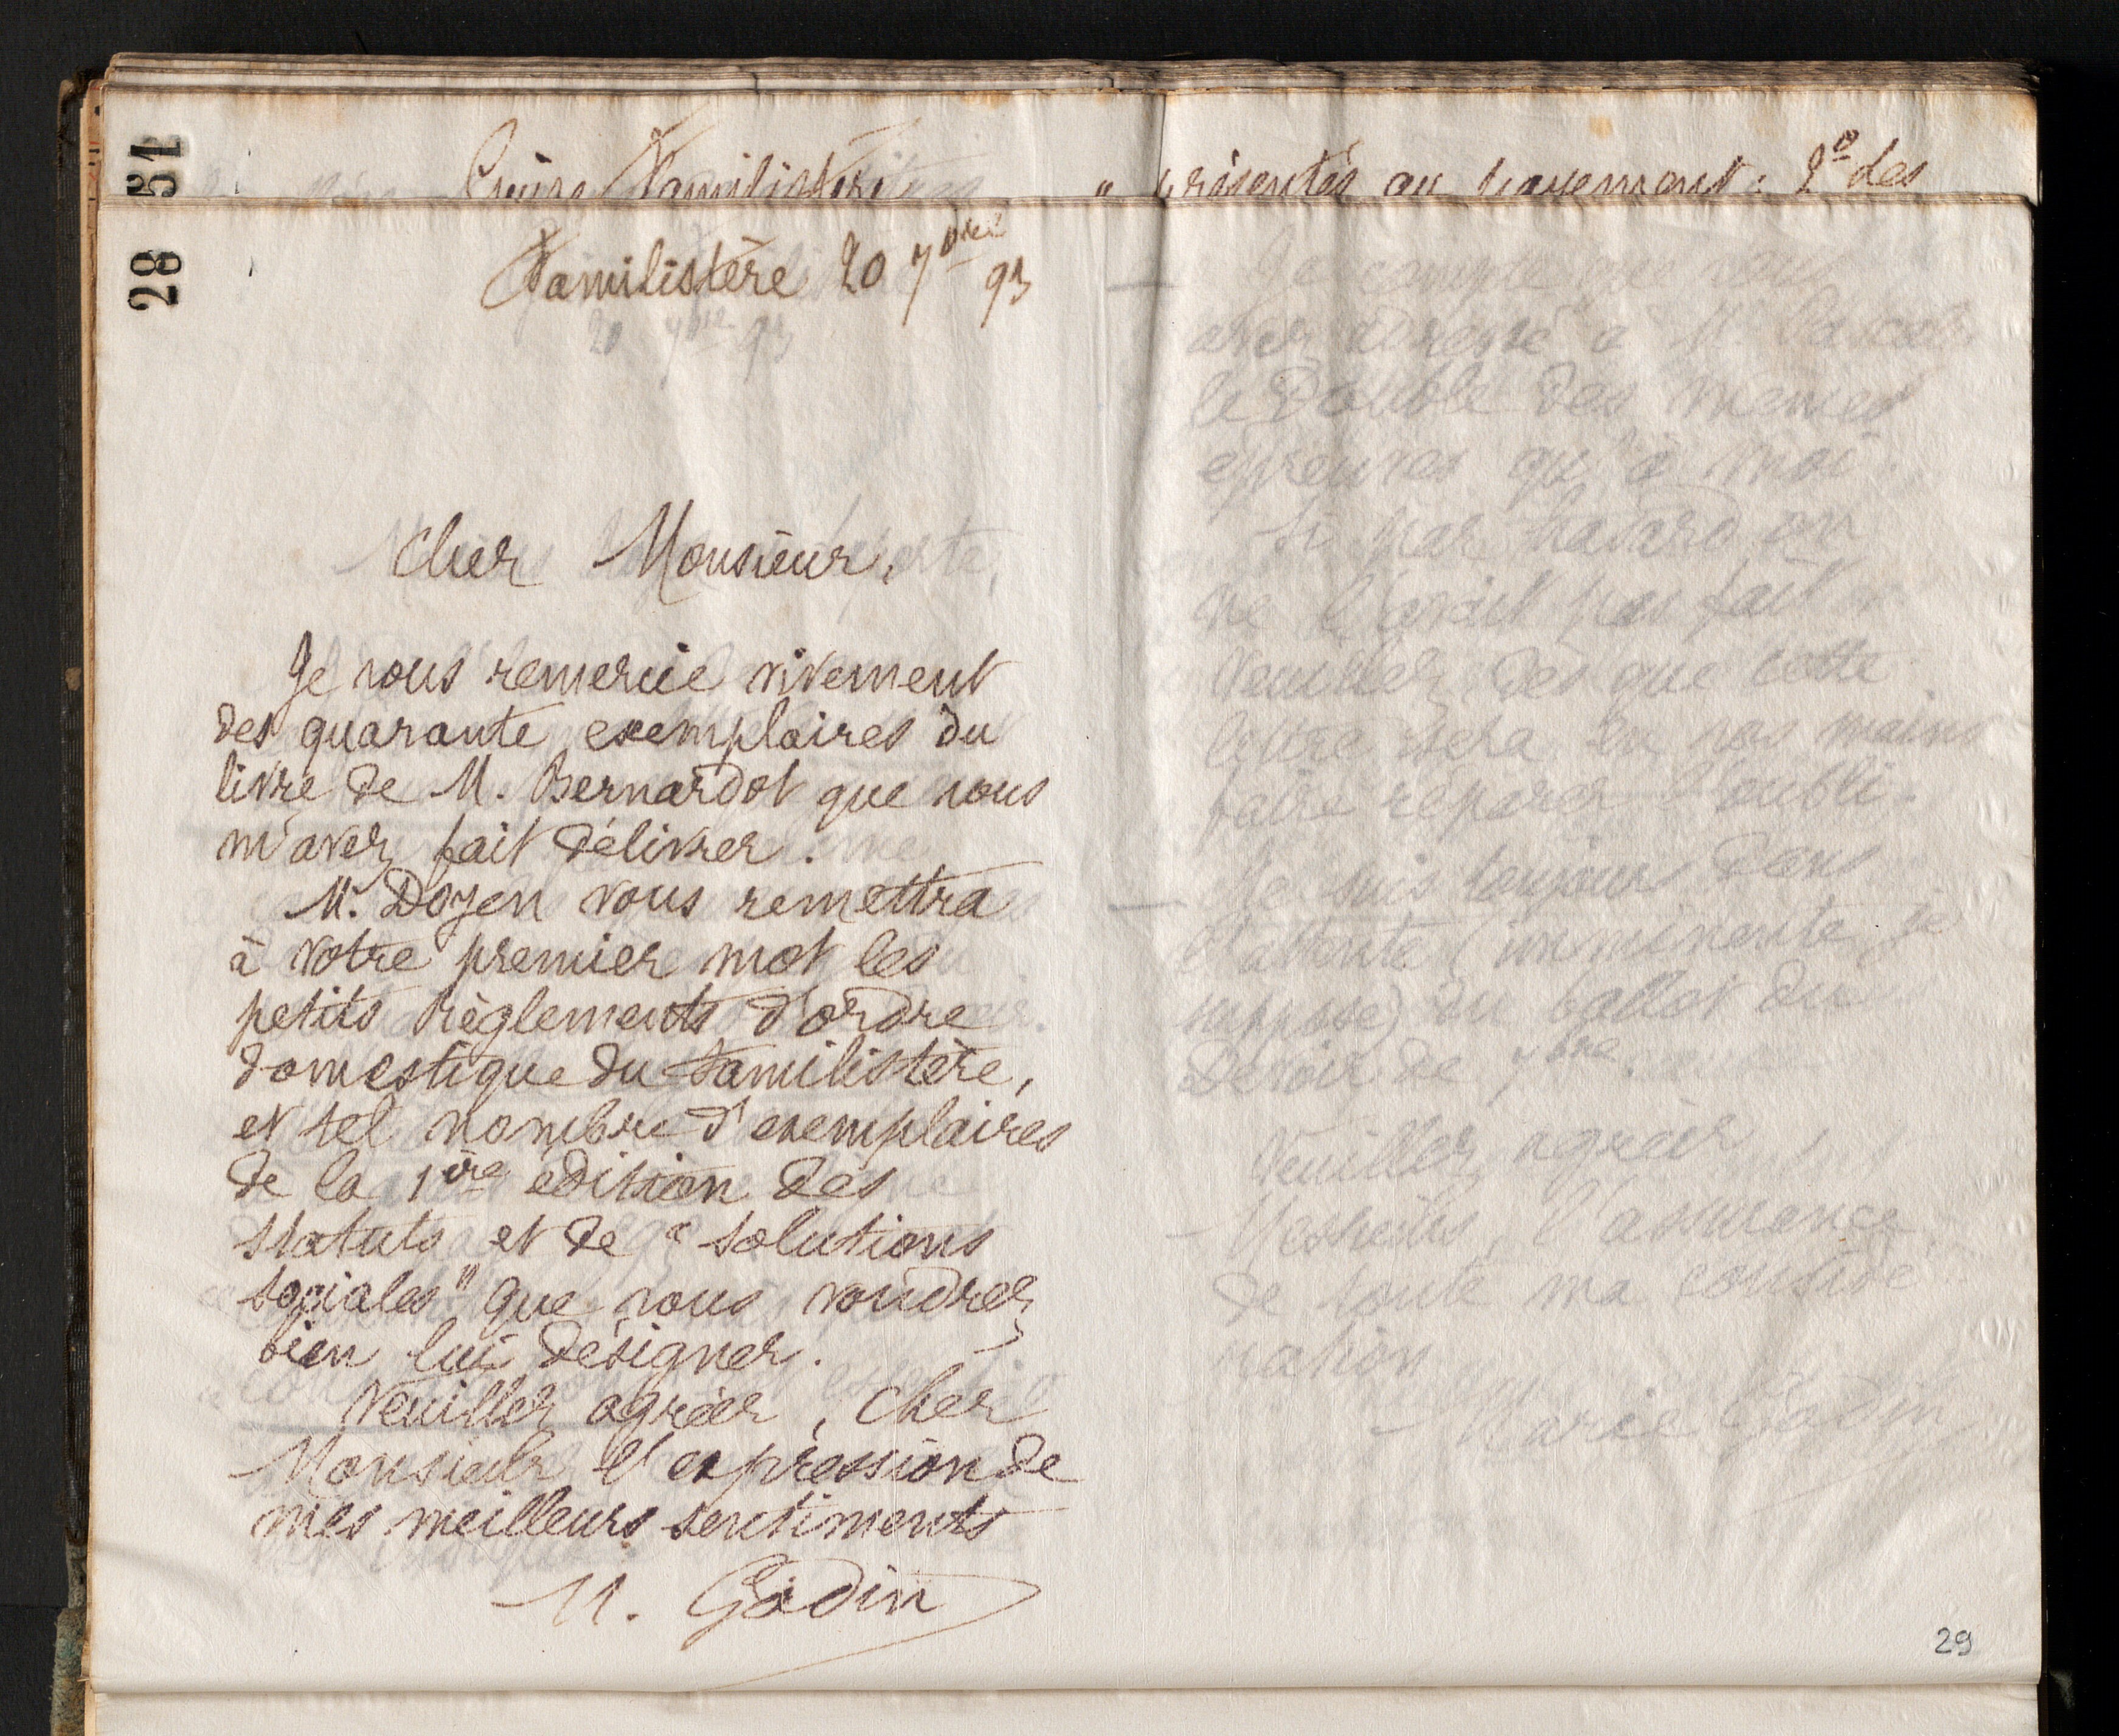 31
Guise Familistère
" présentés au payement : 2º Les
28
Familistère 20 7bre 93
Cher Monsieur,
Je vous remercie vivement
des quarante exemplaires du
livre de M. Bernardot que vous
m'avez fait délivrer.
M. Doyen vous remettra
à votre premier mot les
petits règlements d'ordre
domestique du Familistère,
et tel nombre d'exemplaires
de la 1ère édition des
statuts et de "solutions
sociales" que vous voudrez
bien lui désigner.
Veuillez agréer, Cher
Monsieur l'expression de
mes meilleurs sentiments
M. Godin
Je compte que vous
avez adressé à M. Pascaly
le double des mêmes
épreuves qu'à moi.
Si par hasard on
ne l'avait pas fait
veuillez dès que cette
lettre sera en vos mains
faire réparer l'oubli.
Je suis toujours dans
l'attente (imminente je
suppose) du ballot du
Devoir de 7bre.
Veuillez agréer,
Messieurs, l'assurance
de toute ma considé
ration
Marie Godin
29